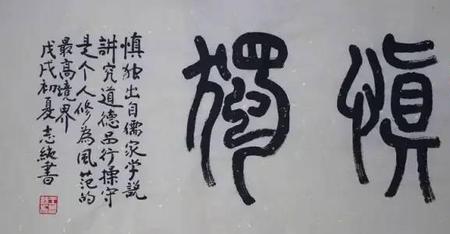 慎獨
慎独出自儒家学説
讲究道德品行操守
是个人修為风范的
最高境界
戊戌初夏志纯書